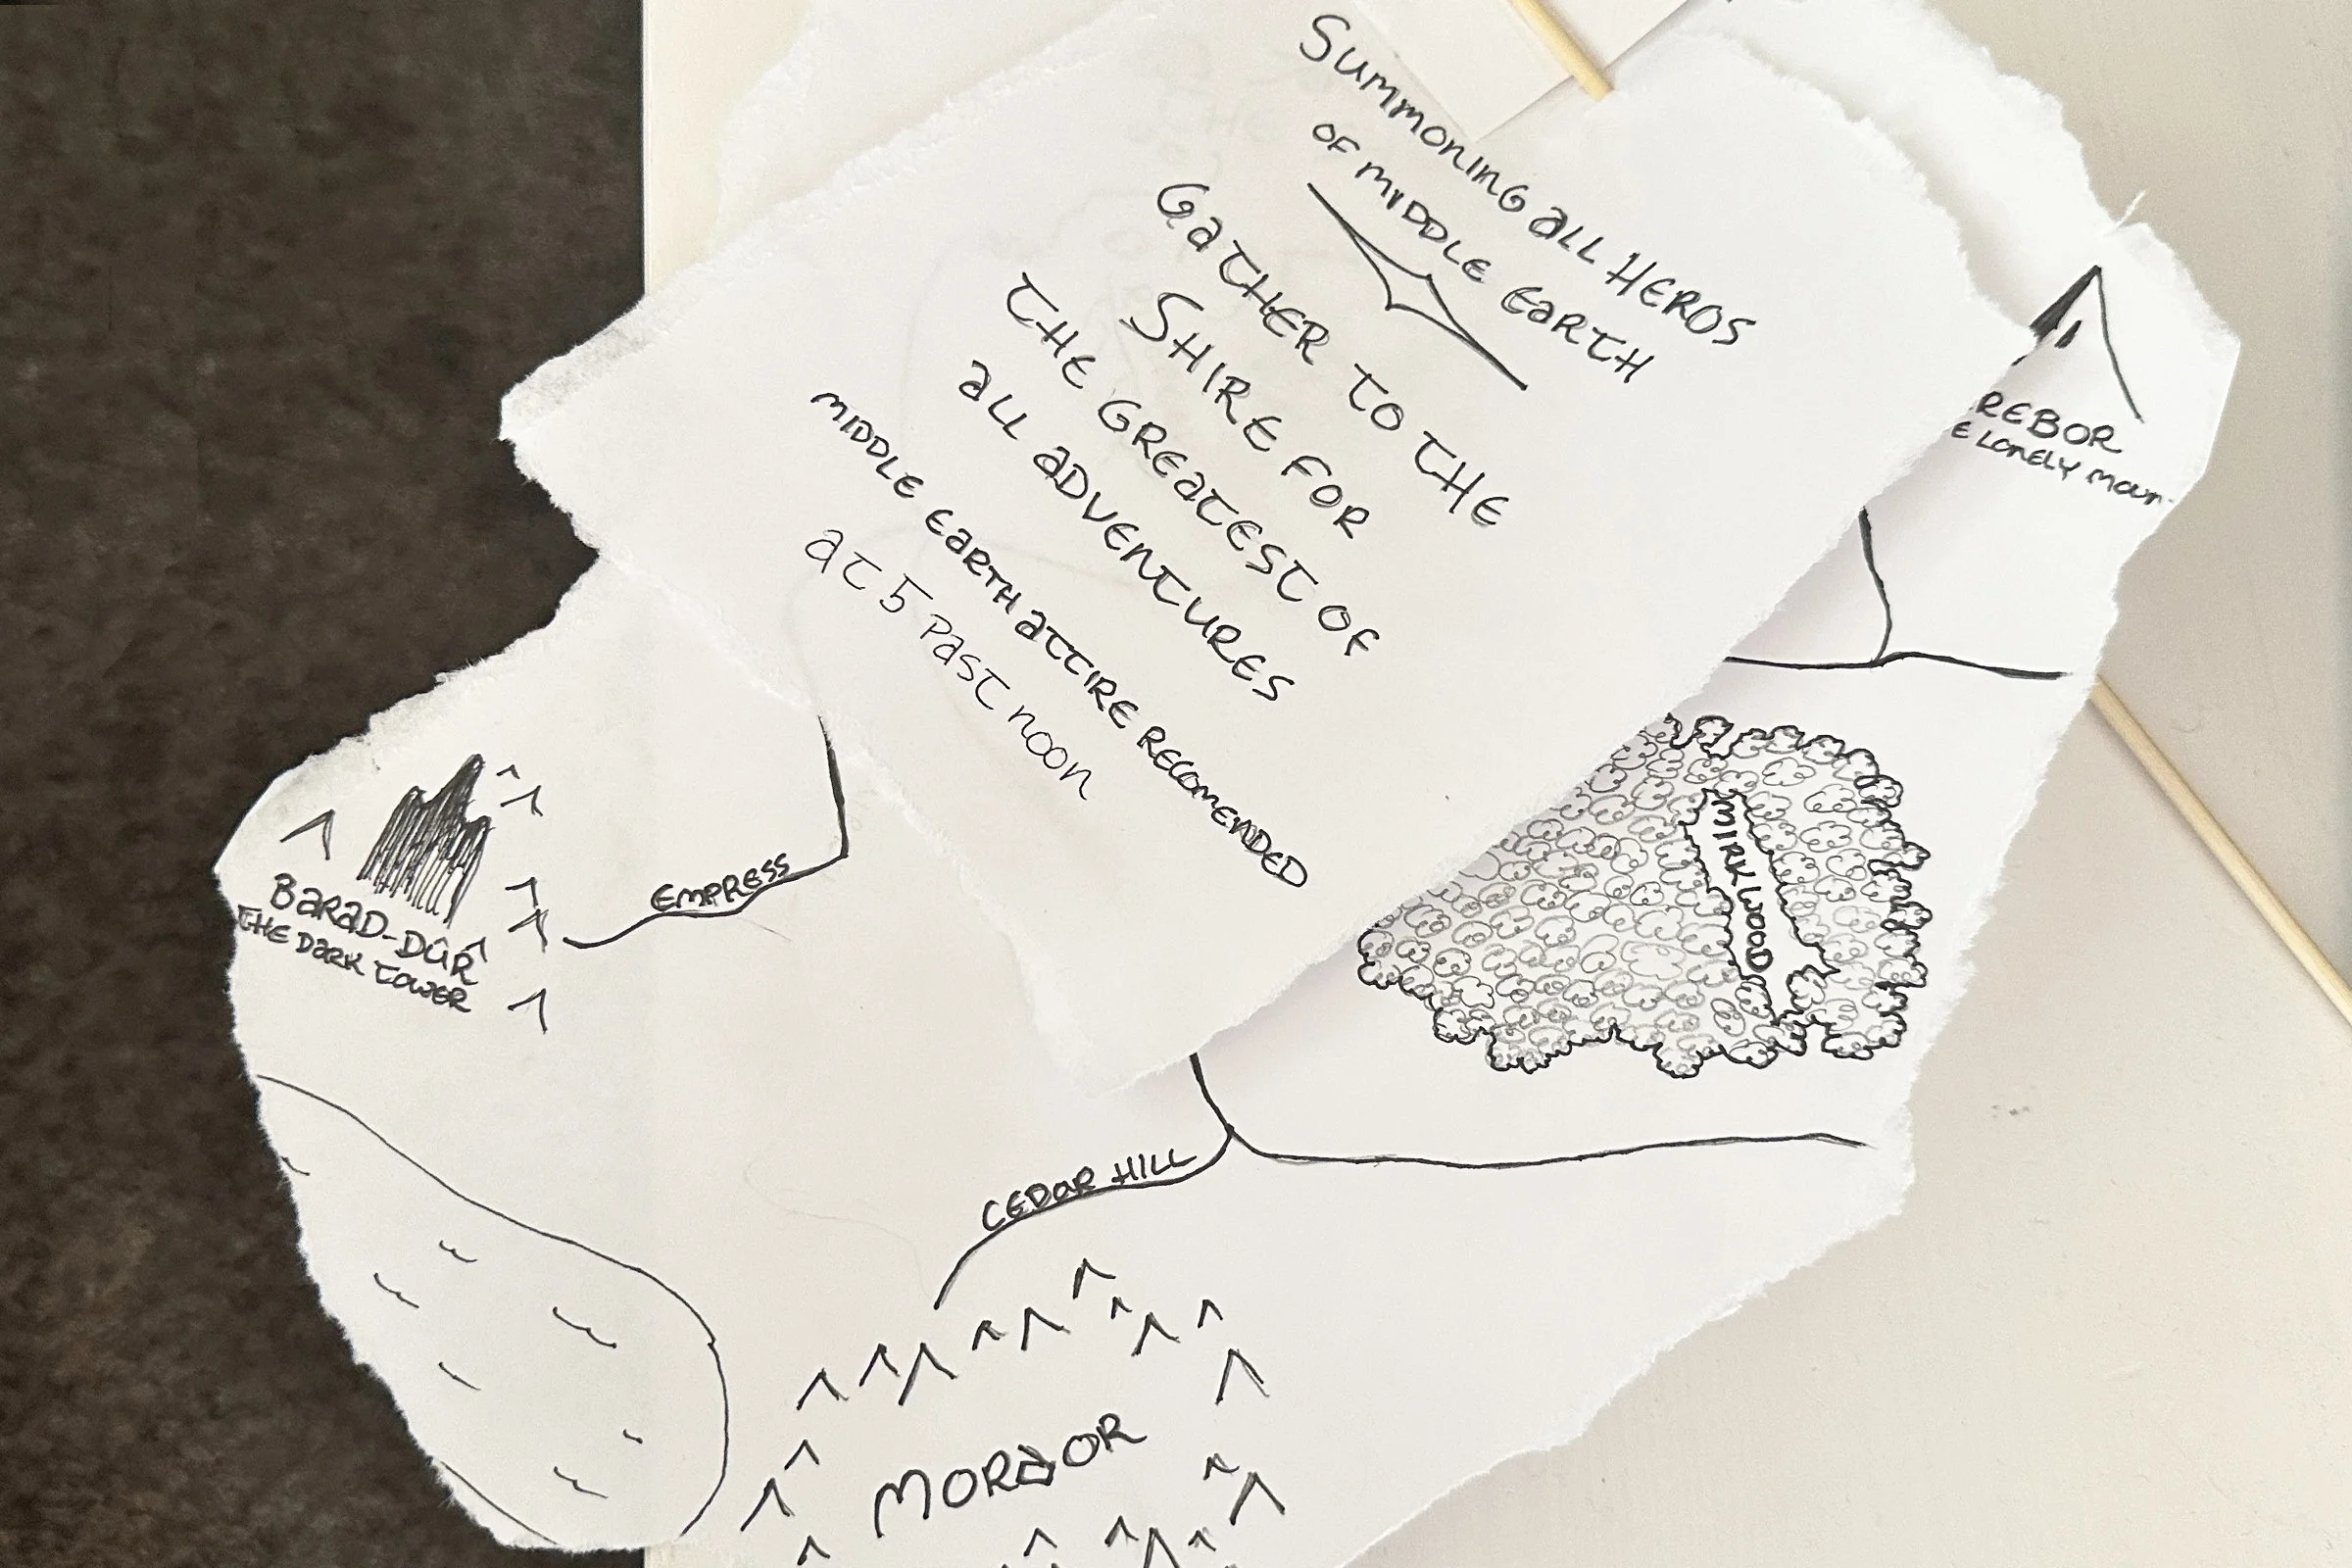 Summoning all Heros
of middle earth
Gather to the
Shire for
the greatest of
all adventures
middle earth attire recomended
at 5 past noon
REBOR
E LONELY moun
MIRKWOOD
EMPRESS
BARAD-DÛR
THE DARK TOWER
CEDAR HILL
MORDOR